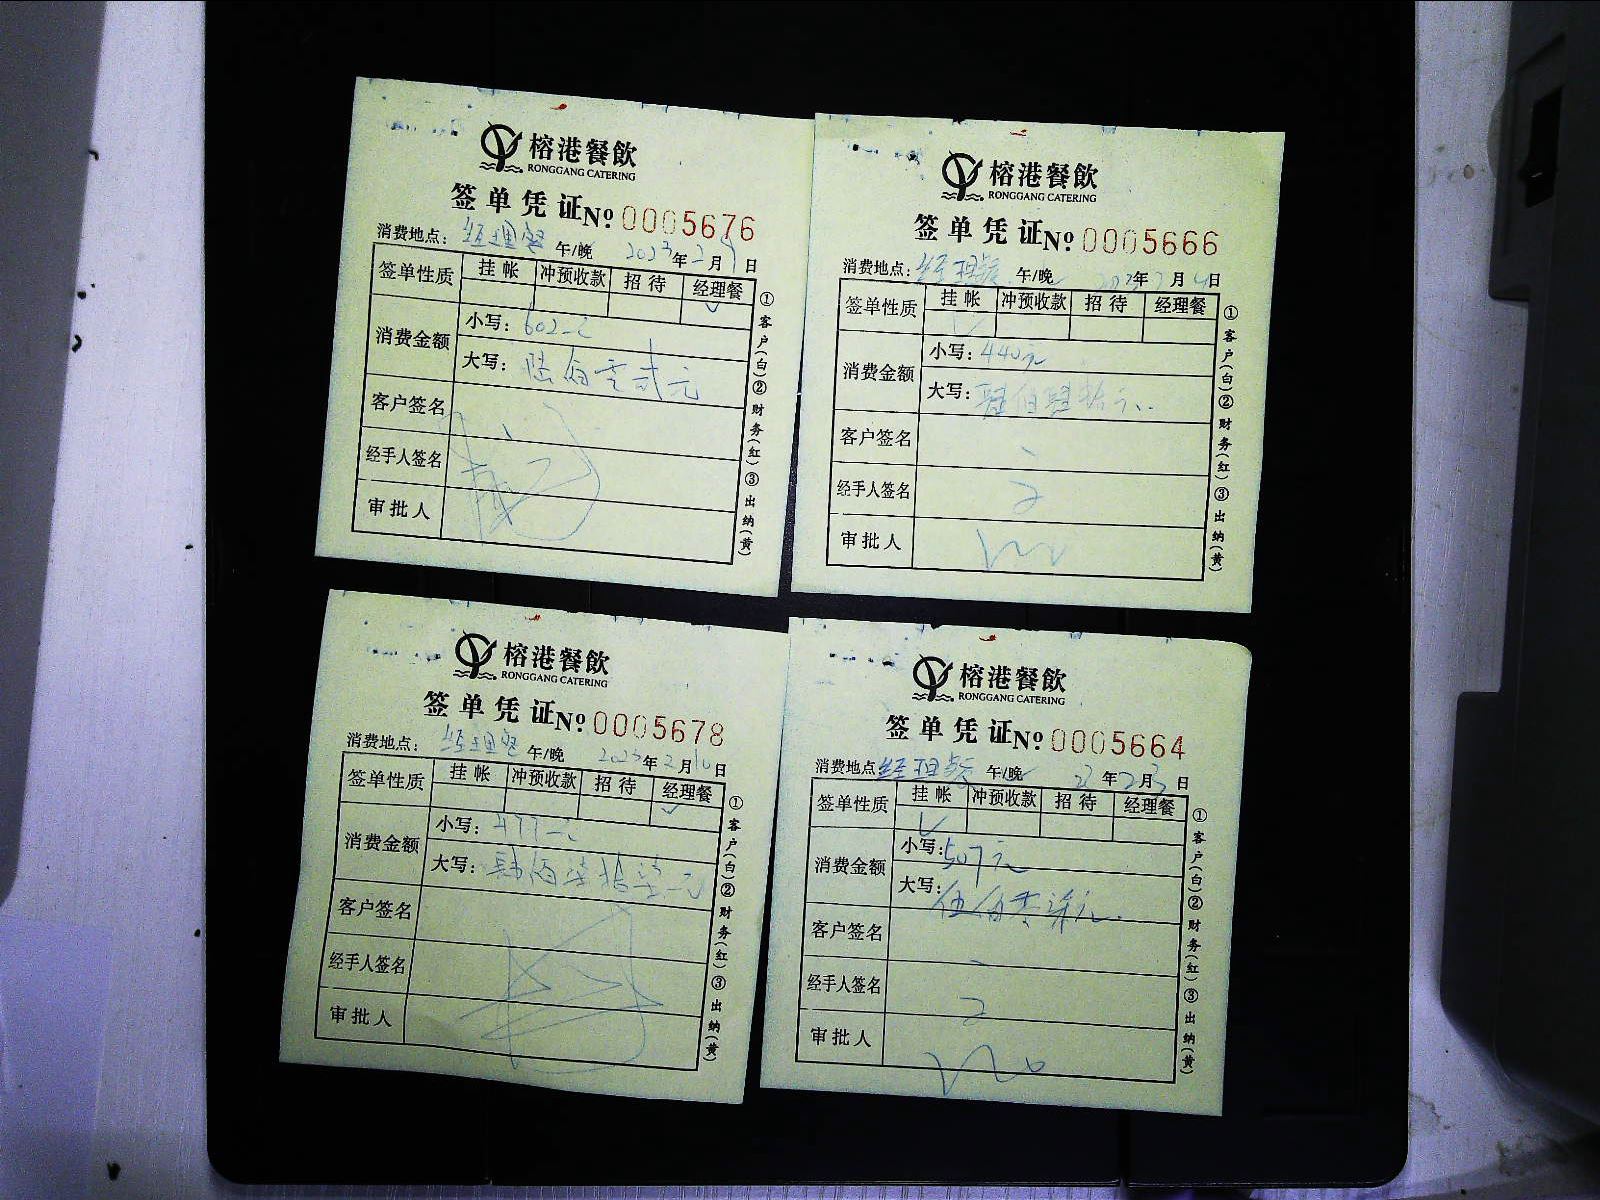 榕港餐飲
RONGGANG CATERING
签单凭证 Nº 0005676
消费地点：经理餐 午/晚 2023年2月9日
签单性质 挂帐 冲预收款 招待 经理餐
✓
消费金额 小写：602元
大写：陆佰零贰元
客户签名
经手人签名
审批人
①客户(白)②财务(红)③出纳(黄)
榕港餐飲
RONGGANG CATERING
签单凭证 Nº 0005666
消费地点：经理餐 午/晚 2023年2月4日
签单性质 挂帐 冲预收款 招待 经理餐
✓
消费金额 小写：440元
大写：肆佰肆拾元
客户签名
经手人签名
审批人
①客户(白)②财务(红)③出纳(黄)
榕港餐飲
RONGGANG CATERING
签单凭证 Nº 0005678
消费地点：经理餐 午/晚 2023年2月10日
签单性质 挂帐 冲预收款 招待 经理餐
✓
消费金额 小写：477元
大写：肆佰柒拾柒元
客户签名
经手人签名
审批人
①客户(白)②财务(红)③出纳(黄)
榕港餐飲
RONGGANG CATERING
签单凭证 Nº 0005664
消费地点：经理餐 午/晚 23年2月3日
签单性质 挂帐 冲预收款 招待 经理餐
✓
消费金额 小写：507元
大写：伍佰零柒元
客户签名
经手人签名
审批人
①客户(白)②财务(红)③出纳(黄)